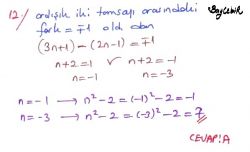 12.) ardışık iki tamsayı arasındaki
Baylebik
fark = ∓1 old. dan
(3n+1) - (2n-1) = ∓1
n+2 = 1 ✓ n+2 = -1
n = -1 n = -3
n = -1 → n² - 2 = (-1)² - 2 = -1
n = -3 → n² - 2 = (-3)² - 2 = 7
CEVAP: A